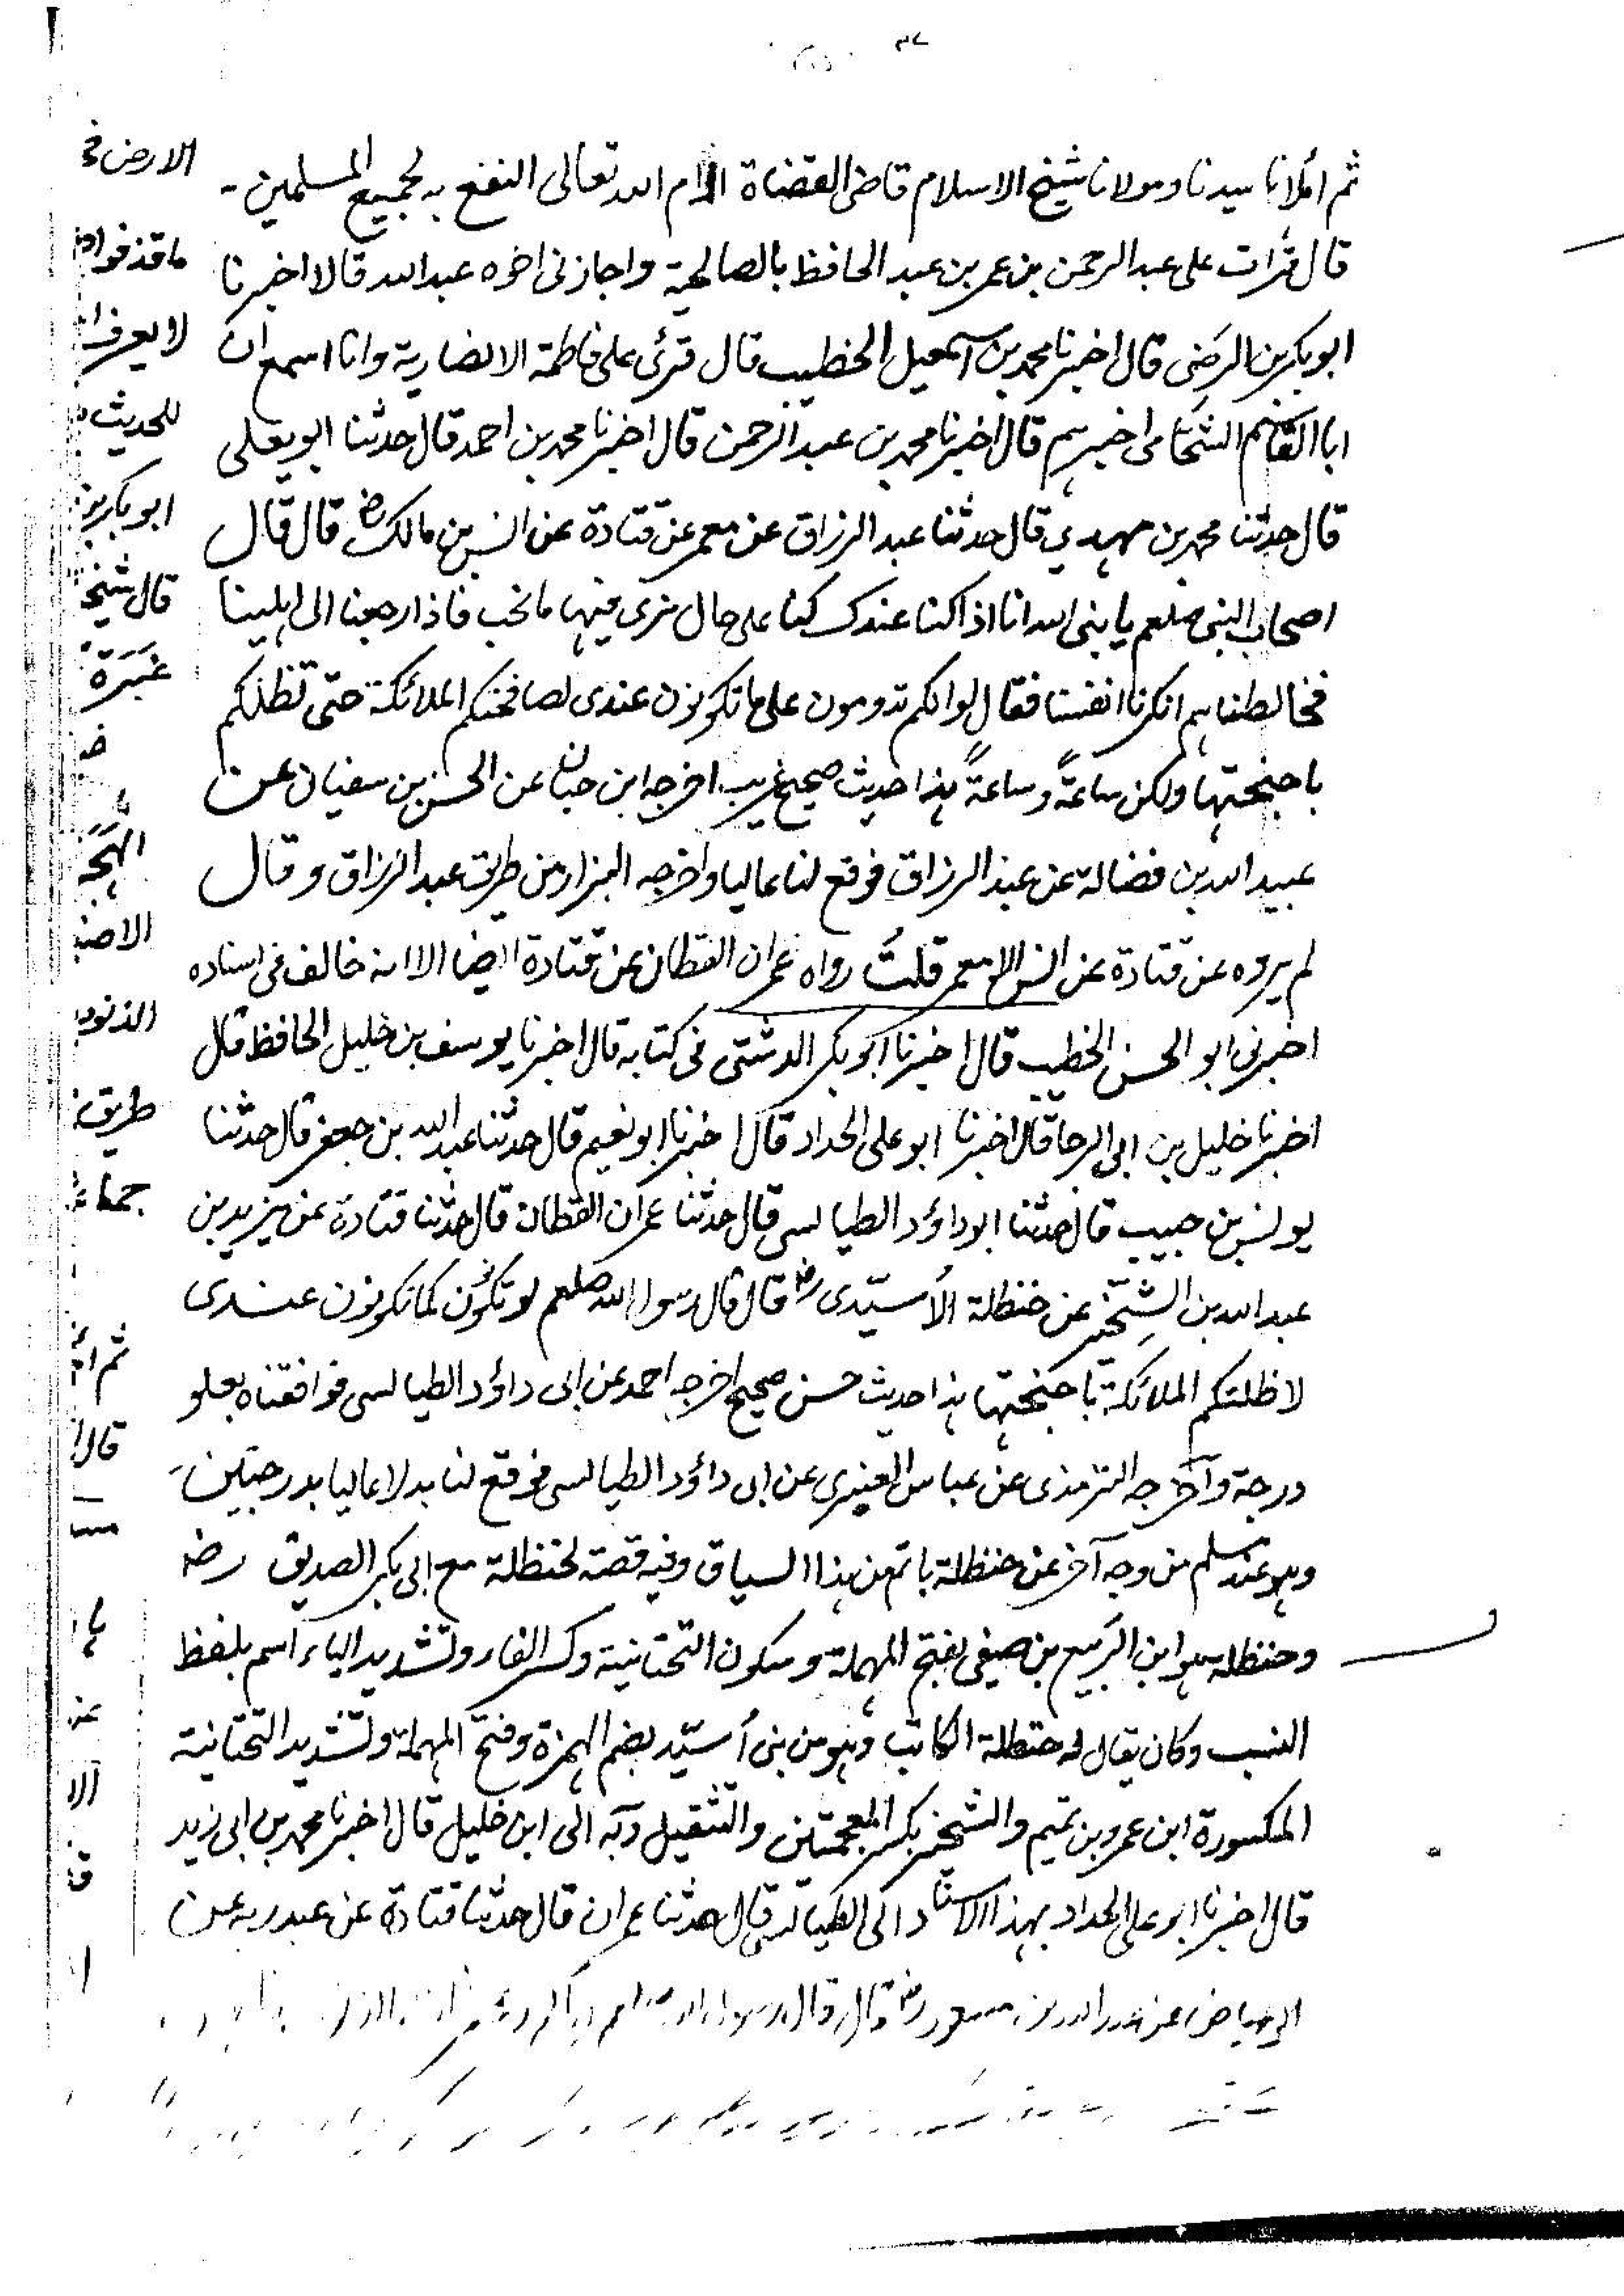 ٣٧
ثم أملانا سيدنا ومولانا شيخ الاسلام قاضى القضاة ادام الله تعالى النفع به لجميع المسلمين -
قال قرات على عبد الرحمن بن عمر بن عبد الحافظ بالصالحية واجازنى اخوه عبد الله قالا اخبرنا
ابو بكر بن الرضى قال اخبرنا محمد بن اسمعيل الخطيب قال قرئ على فاطمة الانصارية وانا اسمع ان
ابا القاسم الشحامى اخبرهم قال اخبرنا محمد بن عبد الرحمن قال اخبرنا محمد بن احمد قال حدثنا ابو يعلى
قال حدثنا محمد بن مهدي قال حدثنا عبد الرزاق عن معمر عن قتادة عن انس بن مالك رض قال قال
اصحاب النبى صلعم يا نبى الله انا اذا كنا عندك كنا على حال نرى فيها ما نحب فاذا رجعنا الى اهلينا
فخالطناهم انكرنا انفسنا فقال لو انكم تدومون على ما تكونون عندى لصافحتكم الملائكة حتى تظلكم
باجنحتها ولكن ساعةً وساعةً هذا حديث صحيح غريب اخرجه ابن حبان عن الحسن بن سفيان عن
عبيد الله بن فضالة عن عبد الرزاق فوقع لنا عاليا واخرجه البزار من طريق عبد الرزاق وقال
لم يروه عن قتادة عن انس الا معمر قلتُ رواه عمران القطان عن قتادة ايضا الا انه خالف فى اسناده
اخبرنى ابو الحسن الخطيب قال اخبرنا ابو بكر الدشتى فى كتابه قال اخبرنا يوسف بن خليل الحافظ قال
اخبرنا خليل بن ابى الرجا قال اخبرنا ابو على الحداد قال اخبرنا ابو نعيم قال حدثنا عبد الله بن جعفر قال حدثنا
يونس بن حبيب قال حدثنا ابو داؤد الطيالسى قال حدثنا عمران القطان قال حدثنا قتادة عن يزيد بن
عبد الله بن الشِخّير عن حنظلة الأُسيّدى رض قال قال رسول الله صلعم لو تكونون كما تكونون عندى
لاظلتكم الملائكة باجنحتها هذا حديث حسن صحيح اخرجه احمد عن ابى داؤد الطيالسى فوافقناه بعلو
درجة وآخرجه الترمذى عن عباس العنبرى عن ابى داؤد الطيالسى فوقع لنا بدلا عاليا بدرجتين
وهو عند مسلم من وجه آخر عن حنظلة باتم من هذا السياق وفيه قصة لحنظلة مع ابى بكر الصديق رض
وحنظلة هو ابن الربيع بن صيفى بفتح المهملة وسكون التحتانية وكسر الفاء وتشديد الياء اسم بلفظ
النسب وكان يقال له حنظلة الكاتب وهو من بنى أُسيّد بضم الهمزة وفتح المهملة وتشديد التحتانية
المكسورة ابن عمرو بن تميم والشخير بكسر المعجمتين والتثقيل وبه الى ابن خليل قال اخبرنا محمد بن ابى زيد
قال اخبرنا ابو على الحداد بهذا الاسناد الى الطيالسى قال حدثنا عمران قال حدثنا قتادة عن عبد ربه عن
ابى عياض عن عبد الله بن مسعود رض قال قال رسول الله صلعم
الارض
ما قذفوا
لا يعرف
للحديث
ابو بكر بن
قال شيخ
غَبَرَة
الذنوب
طريق
جماعة
قال